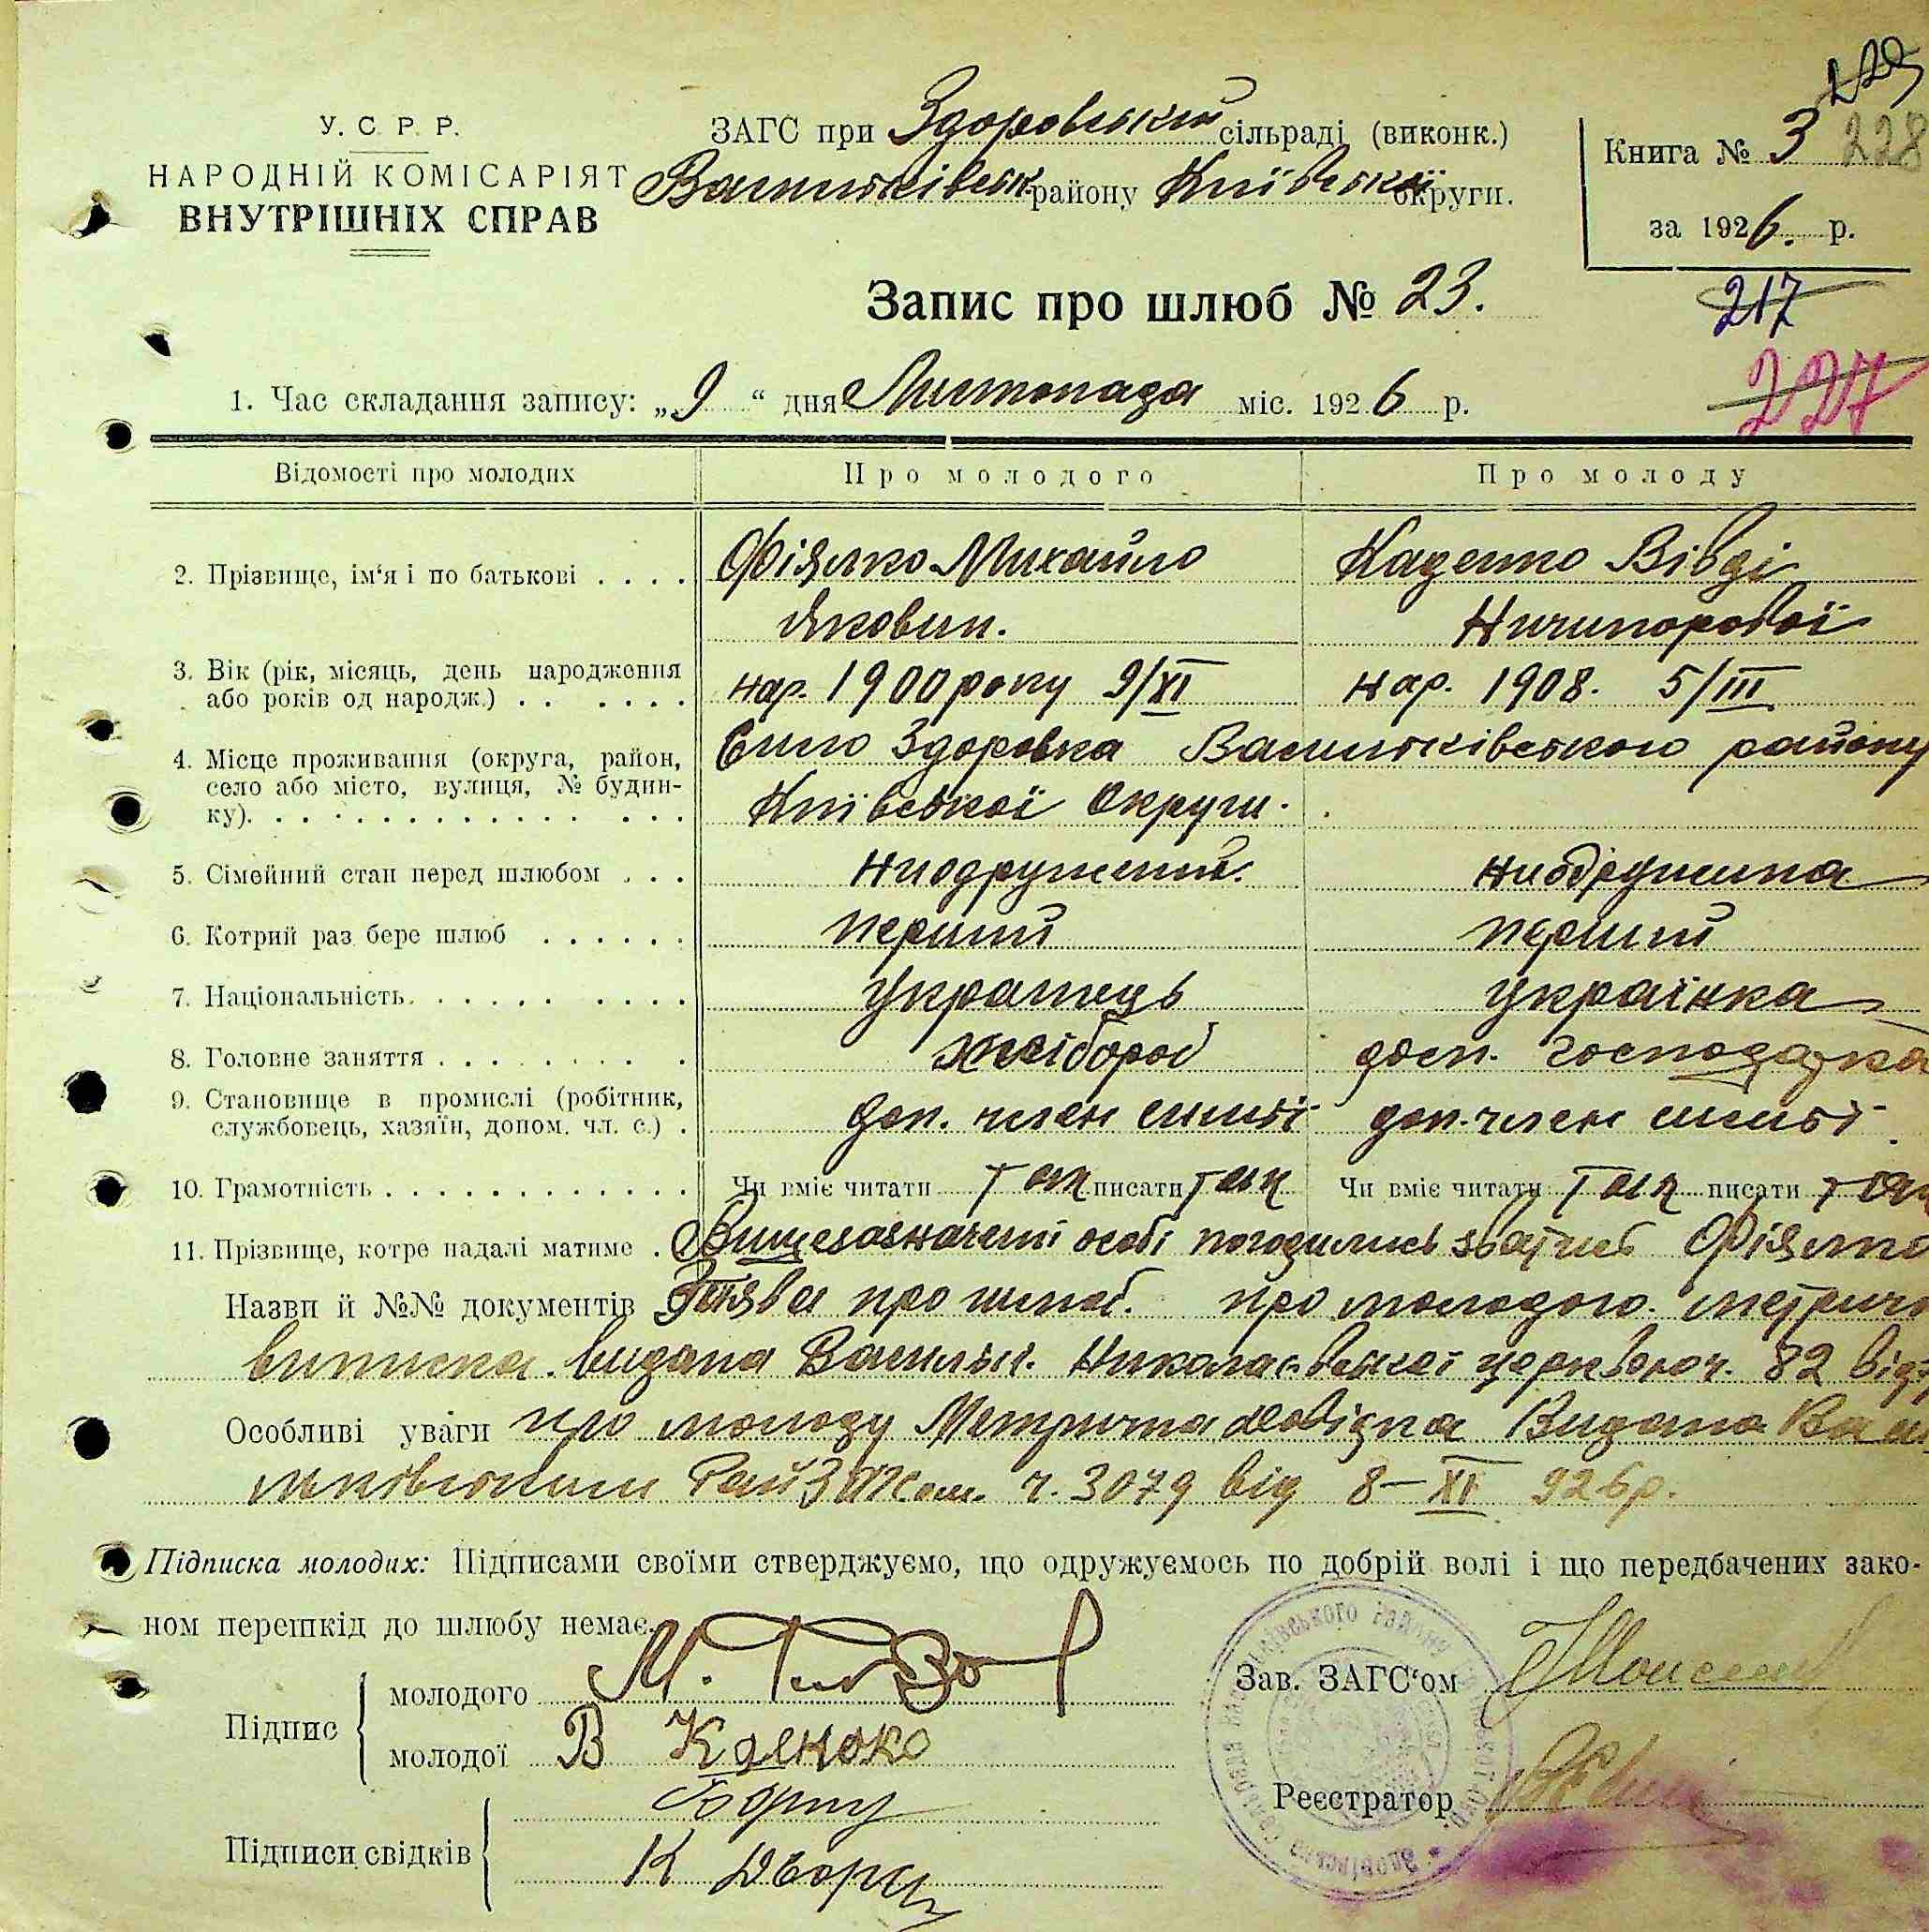 229
У. С. Р. Р.
НАРОДНІЙ КОМІСАРІЯТ
ВНУТРІШНІХ СПРАВ
ЗАГС при Здоровській сільраді (виконк.)
Васильківськ. району Київської округи.
Книга № 3 228
за 1926. р.
Запис про шлюб № 23.
217
227
1. Час складання запису: „9“ дня Листопада міс. 1926 р.
Відомості про молодих Про молодого Про молоду
2. Прізвище, ім'я і по батькові . . . . Фіялко Михайло Каденко Вівді
Яковин. Ничипорової
3. Вік (рік, місяць, день народження
або років од народж.) . . . . . . нар. 1900 року 9/XI нар. 1908. 5/III
4. Місце проживання (округа, район, Село Здоровка Васильківського району
село або місто, вулиця, № будин-
ку). . . . . . . . . . . . . . . . Київської Округи.
5. Сімейний стан перед шлюбом . . . неодружений. неодружена
6. Котрий раз бере шлюб . . . . . . перший перший
7. Національність. . . . . . . . . . українець українка
8. Головне заняття . . . . . . . . хлібороб госп. господарка
9. Становище в промислі (робітник,
службовець, хазяїн, допом. чл. с.) . доп. член сим'ї доп. член сим'ї
10. Грамотність . . . . . . . . . . . . . Чи вміє читати Так писати Так Чи вміє читати Так писати Так
11. Прізвище, котре надалі матиме . Вищезазначені особі погодились зватись Фіялко
Назви й №№ документів Заява про шлюб. про молодого. метрична
виписка. видана Васильк. Николаєвської церквою ч. 82 від
Особливі уваги про молоду Метрична довідка Видана Васи
льківським РайЗАГСом. ч. 3079 від 8-XI 926 р.
Підписка молодих: Підписами своїми стверджуємо, що одружуємось по добрій волі і що передбачених зако-
ном перешкід до шлюбу немає.
Підпис
молодого М.
молодої В Каеноко
Зав. ЗАГС'ом
Реєстратор
Підписи свідків
К